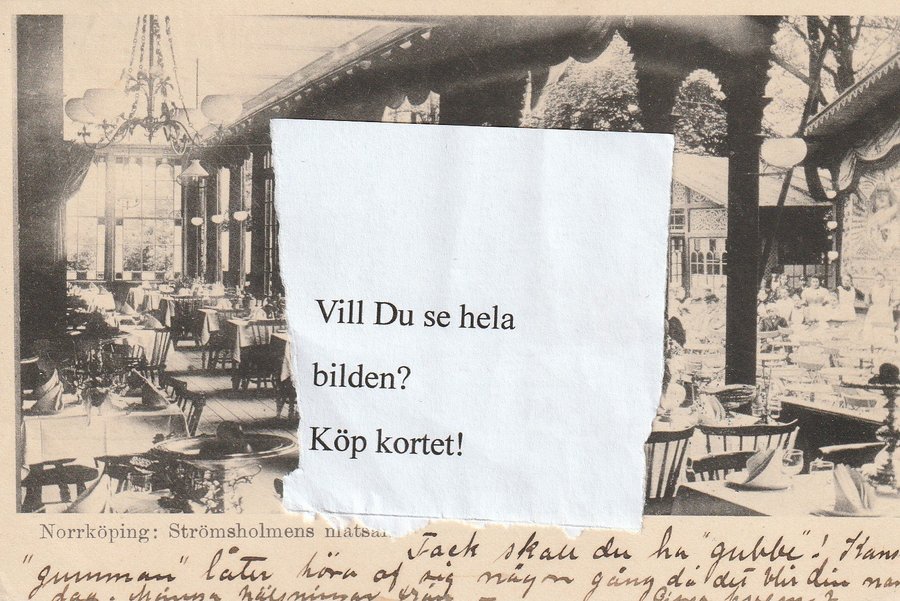 Vill Du se hela
bilden?
Köp kortet!
Norrköping: Strömsholmens matsal
Tack skall du ha "gubbe"! Kans
"gumman" låter höra af sig någon gång då det blir din